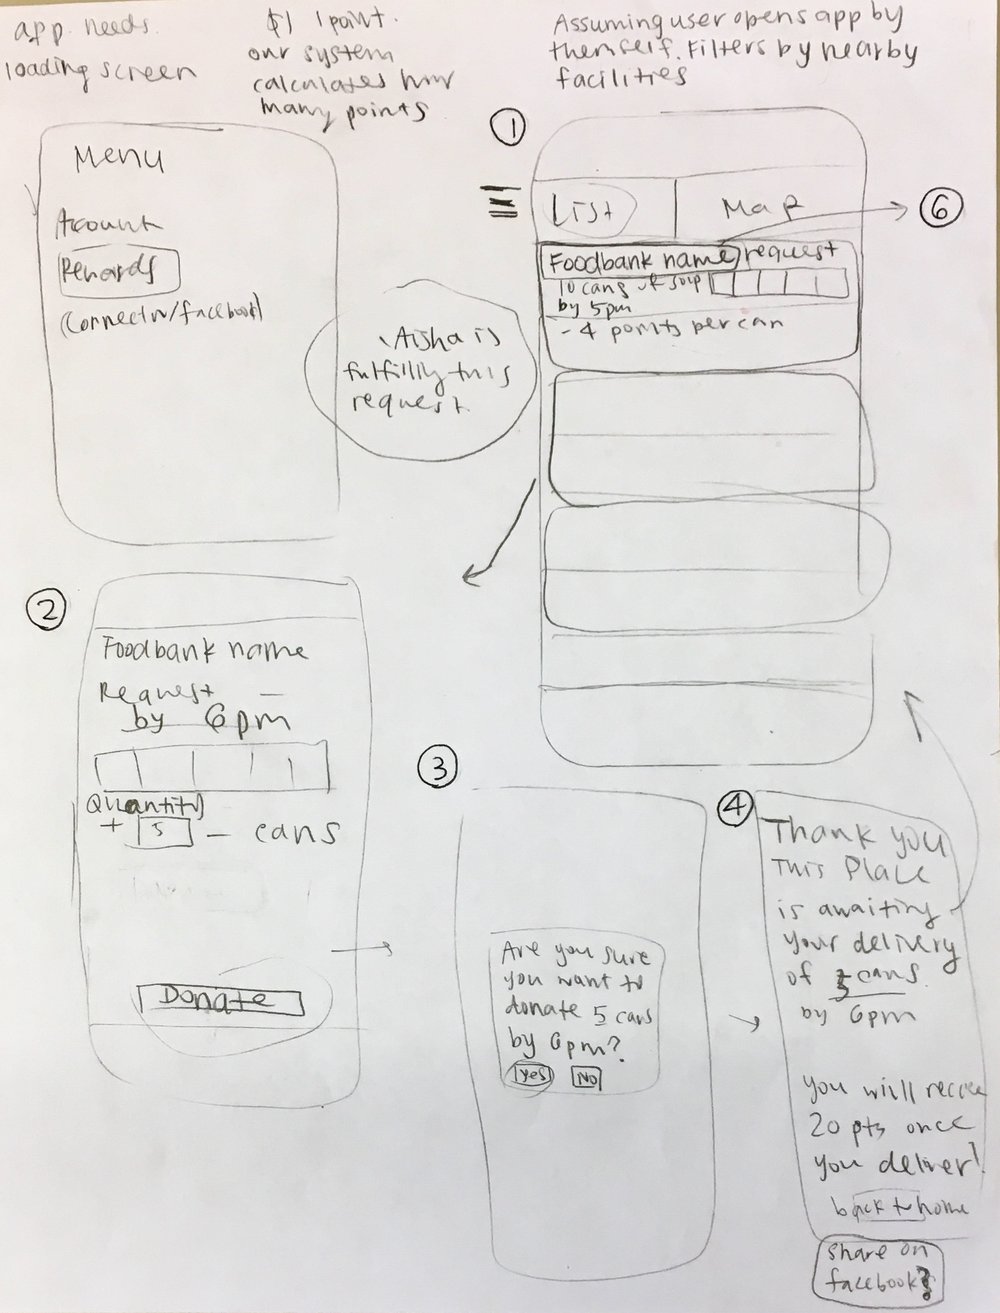 app needs
loading screen
$1 1 point.
our system
calculates how
many points
Assuming user opens app by
themself. Filters by nearby
facilities
Menu
Account
Rewards
(Connect w/facebook)
Aisha is
fulfilling this
request.
1
List
Map
6
Foodbank name request
10 cans of soup
by 5pm
- 4 points per can
2
Foodbank name
Request -
by 6pm
Quantity
+ 5 - cans
Donate
3
Are you sure
you want to
donate 5 cans
by 6pm?
yes No
4
Thank you
This Place
is awaiting
your delivery
of 5 cans.
by 6pm
you will receive
20 pts once
you deliver!
back to home
share on
facebook?